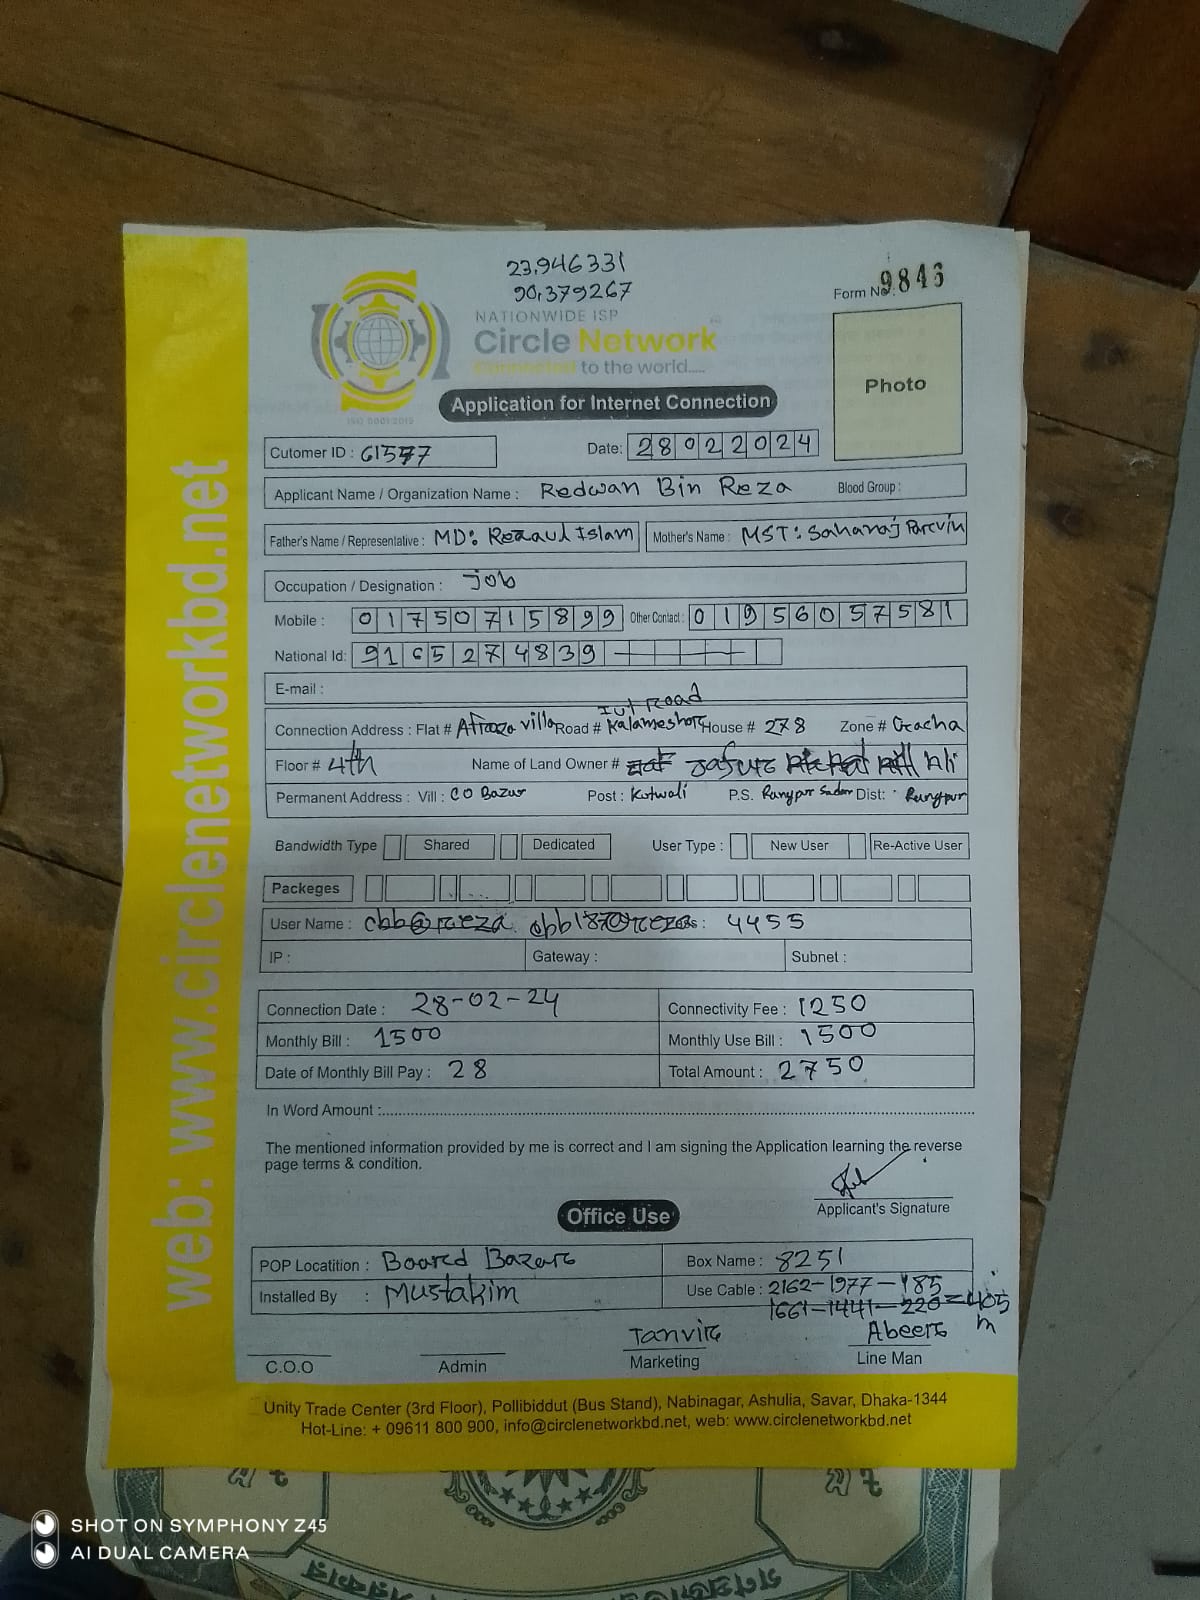 23.946331
90.379267
Form No. 9846
NATIONWIDE ISP
Circle Network
Connected to the world.....
ISO 9001:2015
Photo
Application for Internet Connection
Cutomer ID : 61577
Date: 28022024
Applicant Name / Organization Name : Redwan Bin Reza Blood Group :
Father's Name / Representative : MD: Rezaul Islam Mother's Name : MST: Sahanaj Parvin
Occupation / Designation : job
Mobile : 01750715899 Other Contact : 01956057581
National Id: 9165274839
E-mail :
Iut Road
Connection Address : Flat # Afroza villa Road # Kalameshor House # 278 Zone # Gacha
Floor # 4th Name of Land Owner # Jafur Ali
Permanent Address : Vill : CO Bazar Post : Kotwali P.S. Rangpur Sadar Dist: Rangpur
Bandwidth Type Shared Dedicated User Type : New User Re-Active User
Packeges
User Name : cbb@reza cbb187@reza : 4455
IP : Gateway : Subnet :
Connection Date : 28-02-24 Connectivity Fee : 1250
Monthly Bill : 1500 Monthly Use Bill : 1500
Date of Monthly Bill Pay : 28 Total Amount : 2750
In Word Amount :
The mentioned information provided by me is correct and I am signing the Application learning the reverse
page terms & condition.
Applicant's Signature
Office Use
POP Locatition : Board Bazar Box Name : 8251
Installed By : Mustakim Use Cable : 2162-1977-185
1661-1441-220=405
m
Tanvir Abeer
C.O.O Admin Marketing Line Man
Unity Trade Center (3rd Floor), Pollibiddut (Bus Stand), Nabinagar, Ashulia, Savar, Dhaka-1344
Hot-Line: + 09611 800 900, info@circlenetworkbd.net, web: www.circlenetworkbd.net
web: www.circlenetworkbd.net
SHOT ON SYMPHONY Z45
AI DUAL CAMERA